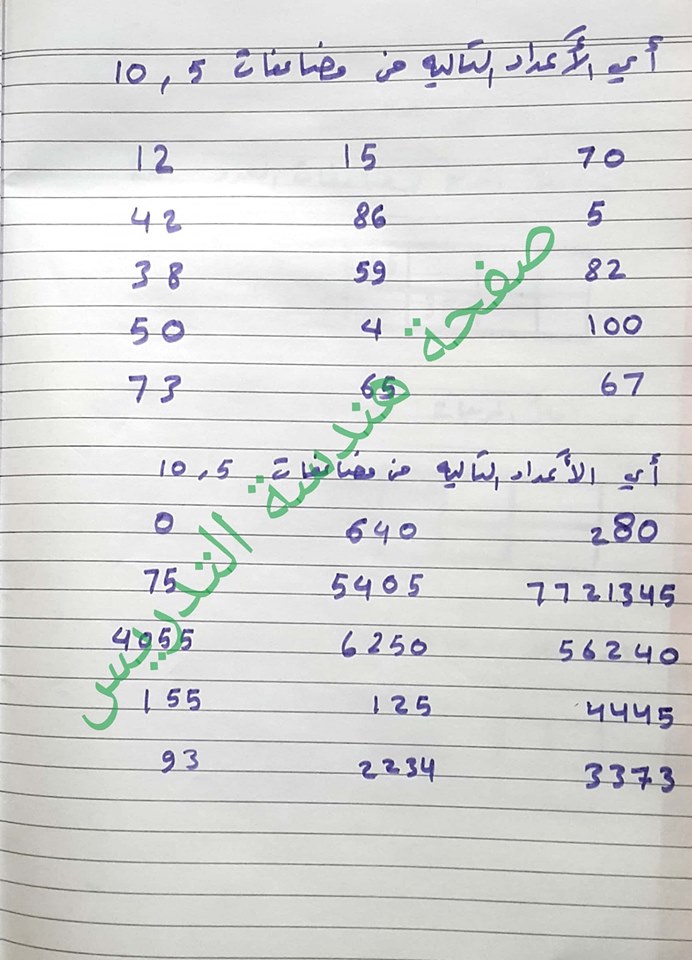 أي الأعداد التاليه من مضاعفات 5 , 10
70 15 12
5 86 42
82 59 38
100 4 50
67 65 73
أي الأعداد التاليه من مضاعفات 5 , 10
280 640 0
7721345 5405 75
56240 6250 4055
4445 125 155
3373 2234 93
صفحة هندسة التدريس